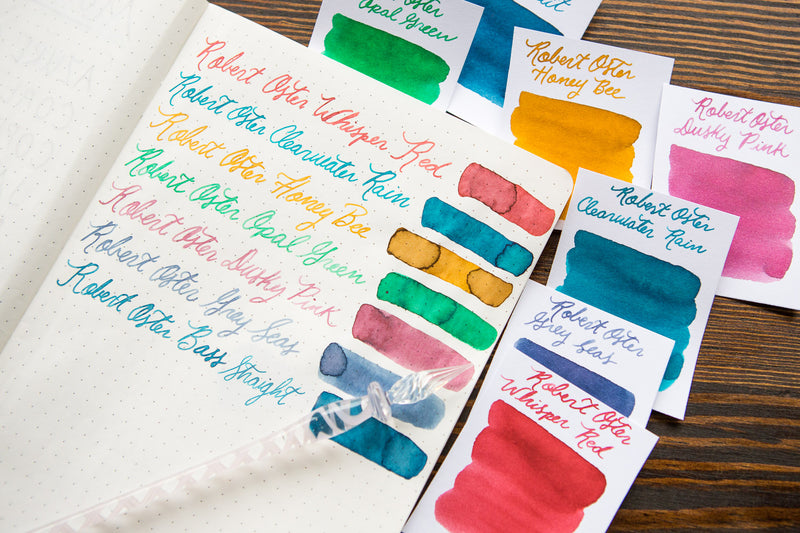 Robert Oster Whisper Red
Robert Oster Clearwater Rain
Robert Oster Honey Bee
Robert Oster Opal Green
Robert Oster Dusky Pink
Robert Oster Grey Seas
Robert Oster Bass Straight
Robert Oster
Opal Green
Robert Oster
Honey Bee
Robert Oster
Dusky Pink
Robert Oster
Clearwater Rain
Robert Oster
Grey Seas
Robert Oster
Whisper Red